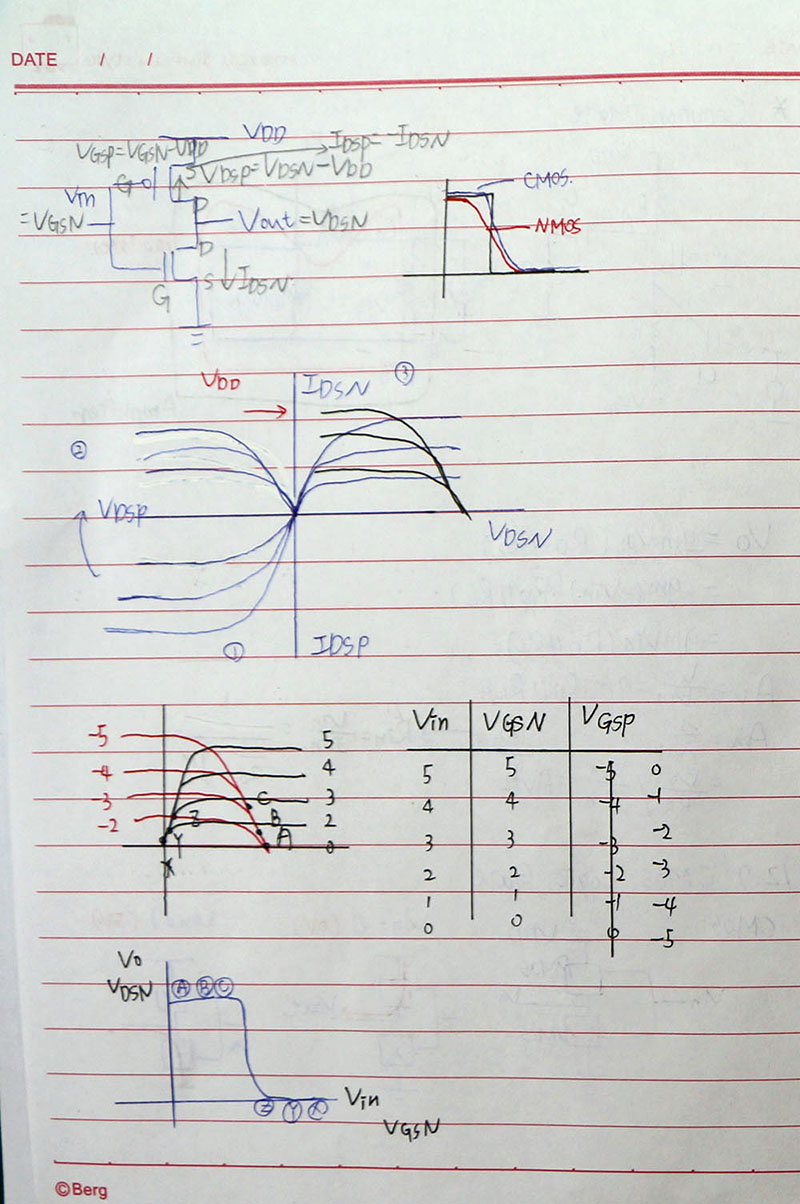 DATE / /
VDD
VGSP=VGSN-VDD
IDSP=-IDSN
S VDSP=VDSN-VDD
Vin
G
=VGSN
D
Vout=VDSN
D
G
S
IDSN
CMOS.
NMOS
VDD
IDSN
③
②
VDSP
VDSN
①
IDSP
-5
5
-4
4
-3
C
3
-2
Z
B
2
Y
A
0
X
Vin VGSN VGSP
5 5 -5 0
4 4 -4 -1
3 3 -3 -2
2 2 -2 -3
1 1 -1 -4
0 0 0 -5
Vo
VDSN
Ⓐ Ⓑ Ⓒ
Vin
Ⓩ Ⓨ Ⓧ
VGSN
©Berg